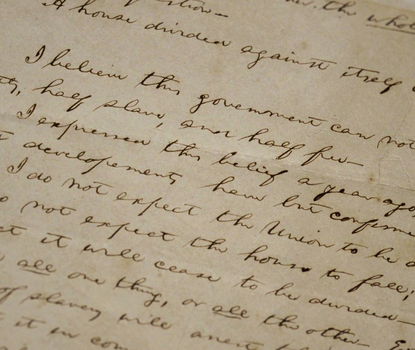 the whole
A house divided against itself
I believe this government can not
half slave, and half free
I expressed this belief a year ago
developements have but confirmed
I do not expect the Union to be
not expect the house to fall;
it will cease to be divided
all one thing, or all the other
of slavery will arrest
it in